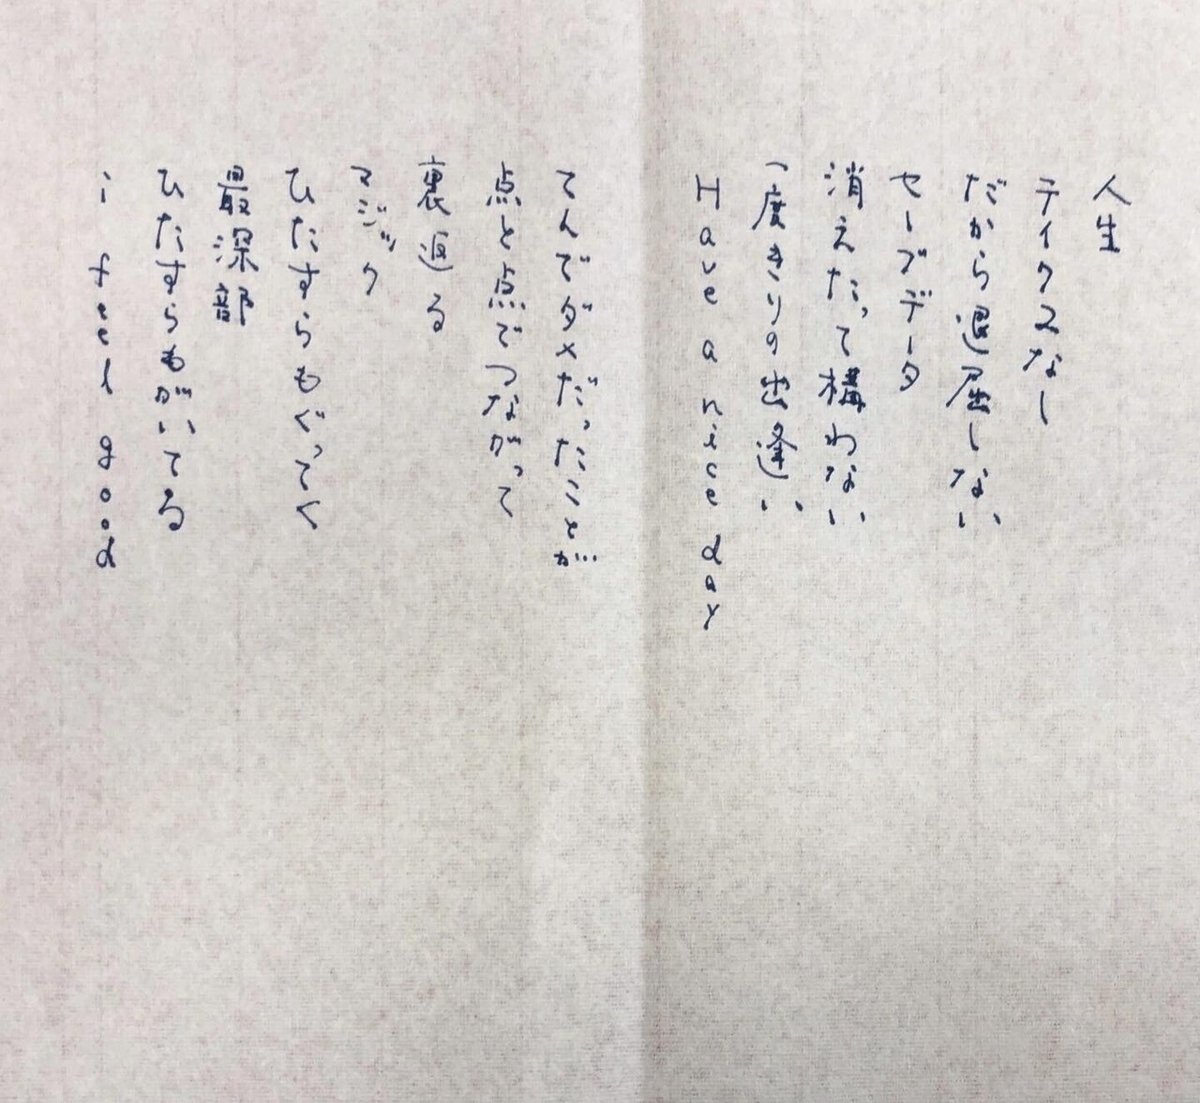 人生
テイクスなし
だから退屈しない
セーブデータ
消えたって構わない
一度きりの出逢い
Have a nice day
てんでダメだったことが
点と点でつながって
裏返る
マジック
ひたすらもぐってく
最深部
ひたすらもがいてる
i feel good